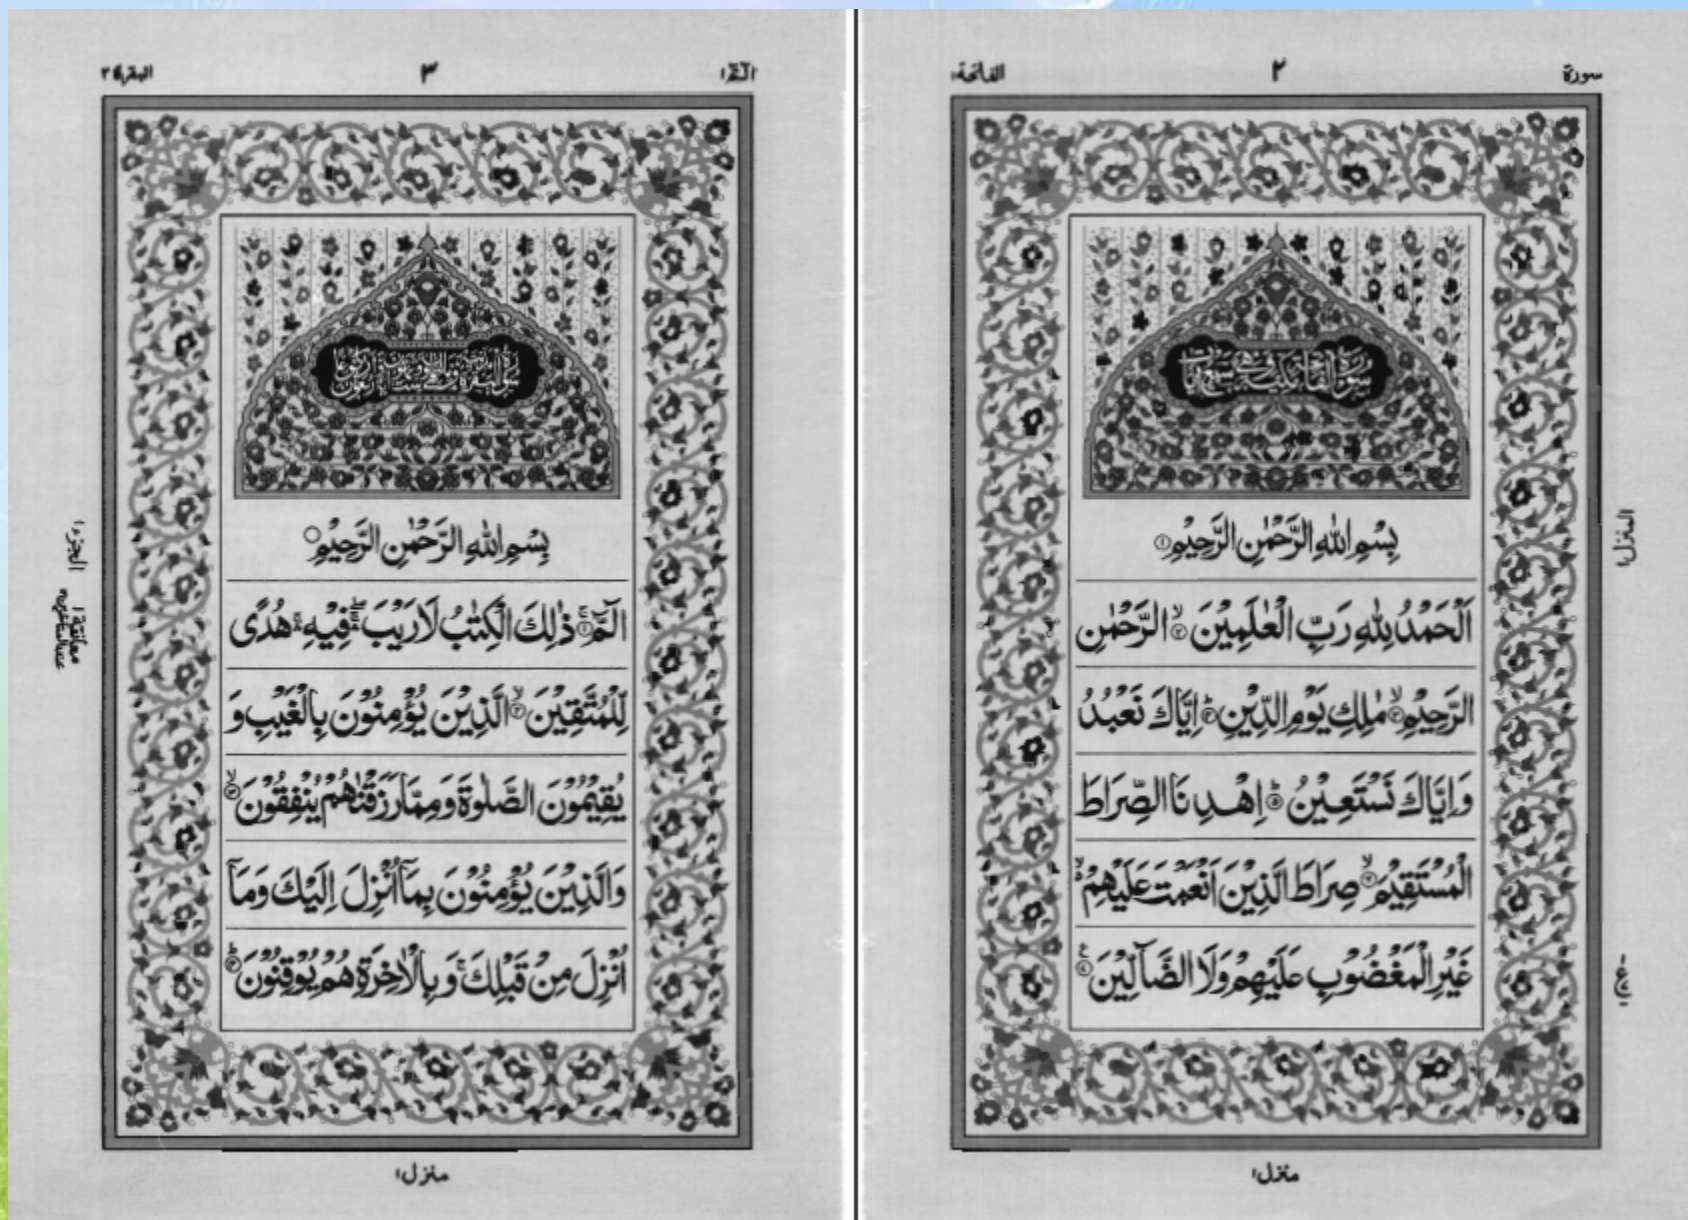 سورة
٢
الفاتحة ١
بِسْمِ اللهِ الرَّحْمٰنِ الرَّحِيْمِ ①
اَلْحَمْدُ لِلّٰهِ رَبِّ الْعٰلَمِيْنَ ۙ② الرَّحْمٰنِ
الرَّحِيْمِ ۙ③ مٰلِكِ يَوْمِ الدِّيْنِ ④ؕ اِيَّاكَ نَعْبُدُ
وَاِيَّاكَ نَسْتَعِيْنُ ⑤ؕ اِهْدِنَا الصِّرَاطَ
الْمُسْتَقِيْمَ ۙ صِرَاطَ الَّذِيْنَ اَنْعَمْتَ عَلَيْهِمْ ۙ
غَيْرِ الْمَغْضُوْبِ عَلَيْهِمْ وَلَا الضَّآلِّيْنَ
المنزل ١
منزل ١
الٓمّٓ ١
٣
البقرة ٢
بِسْمِ اللهِ الرَّحْمٰنِ الرَّحِيْمِ
الٓمّٓ ① ذٰلِكَ الْكِتٰبُ لَا رَيْبَ ۛ فِيْهِ ۛ هُدًى
لِّلْمُتَّقِيْنَ ۙ② الَّذِيْنَ يُؤْمِنُوْنَ بِالْغَيْبِ وَ
يُقِيْمُوْنَ الصَّلٰوةَ وَمِمَّا رَزَقْنٰهُمْ يُنْفِقُوْنَ ۙ③
وَالَّذِيْنَ يُؤْمِنُوْنَ بِمَآ اُنْزِلَ اِلَيْكَ وَمَآ
اُنْزِلَ مِنْ قَبْلِكَ ۚ وَبِالْاٰخِرَةِ هُمْ يُوْقِنُوْنَ ④ؕ
الجزء ١
معانقة ١
منزل ١